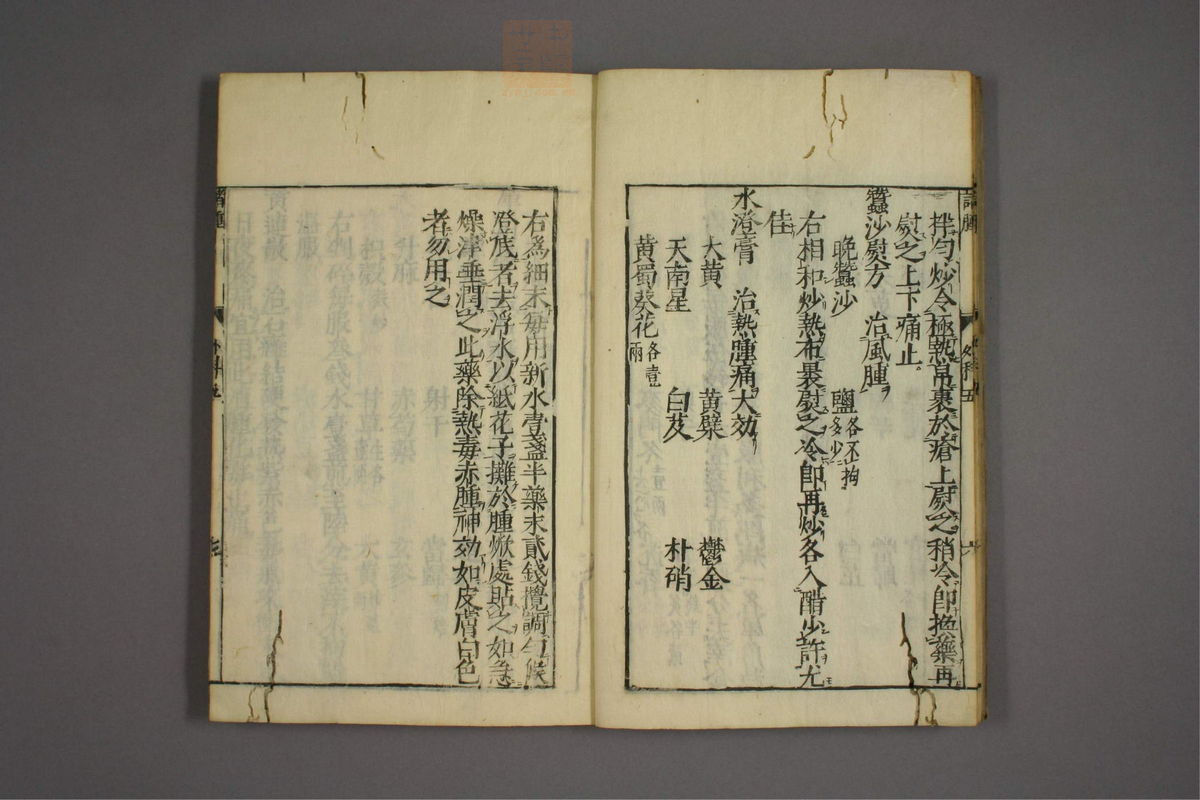 拌勻炒令極熱帛裹於瘡上熨之稍冷卽換藥再
熨之上下痛止
蠶沙熨方 治風腫
晩蠶沙 鹽各不拘多少
右相和炒熱布裹熨之冷卽再炒各入醋少許尤
佳
水澄膏 治熱腫痛大効
大黄 黄檗 鬱金
天南星 白芨 朴硝
黄蜀葵花各壹兩
右為細末每用新水壹盞半藥末貳錢攪調勻候
澄底者去浮水以紙花子攤於腫焮處貼之如急
燥津垂潤之此藥除熱毒赤腫神効如皮膚白色
者勿用之